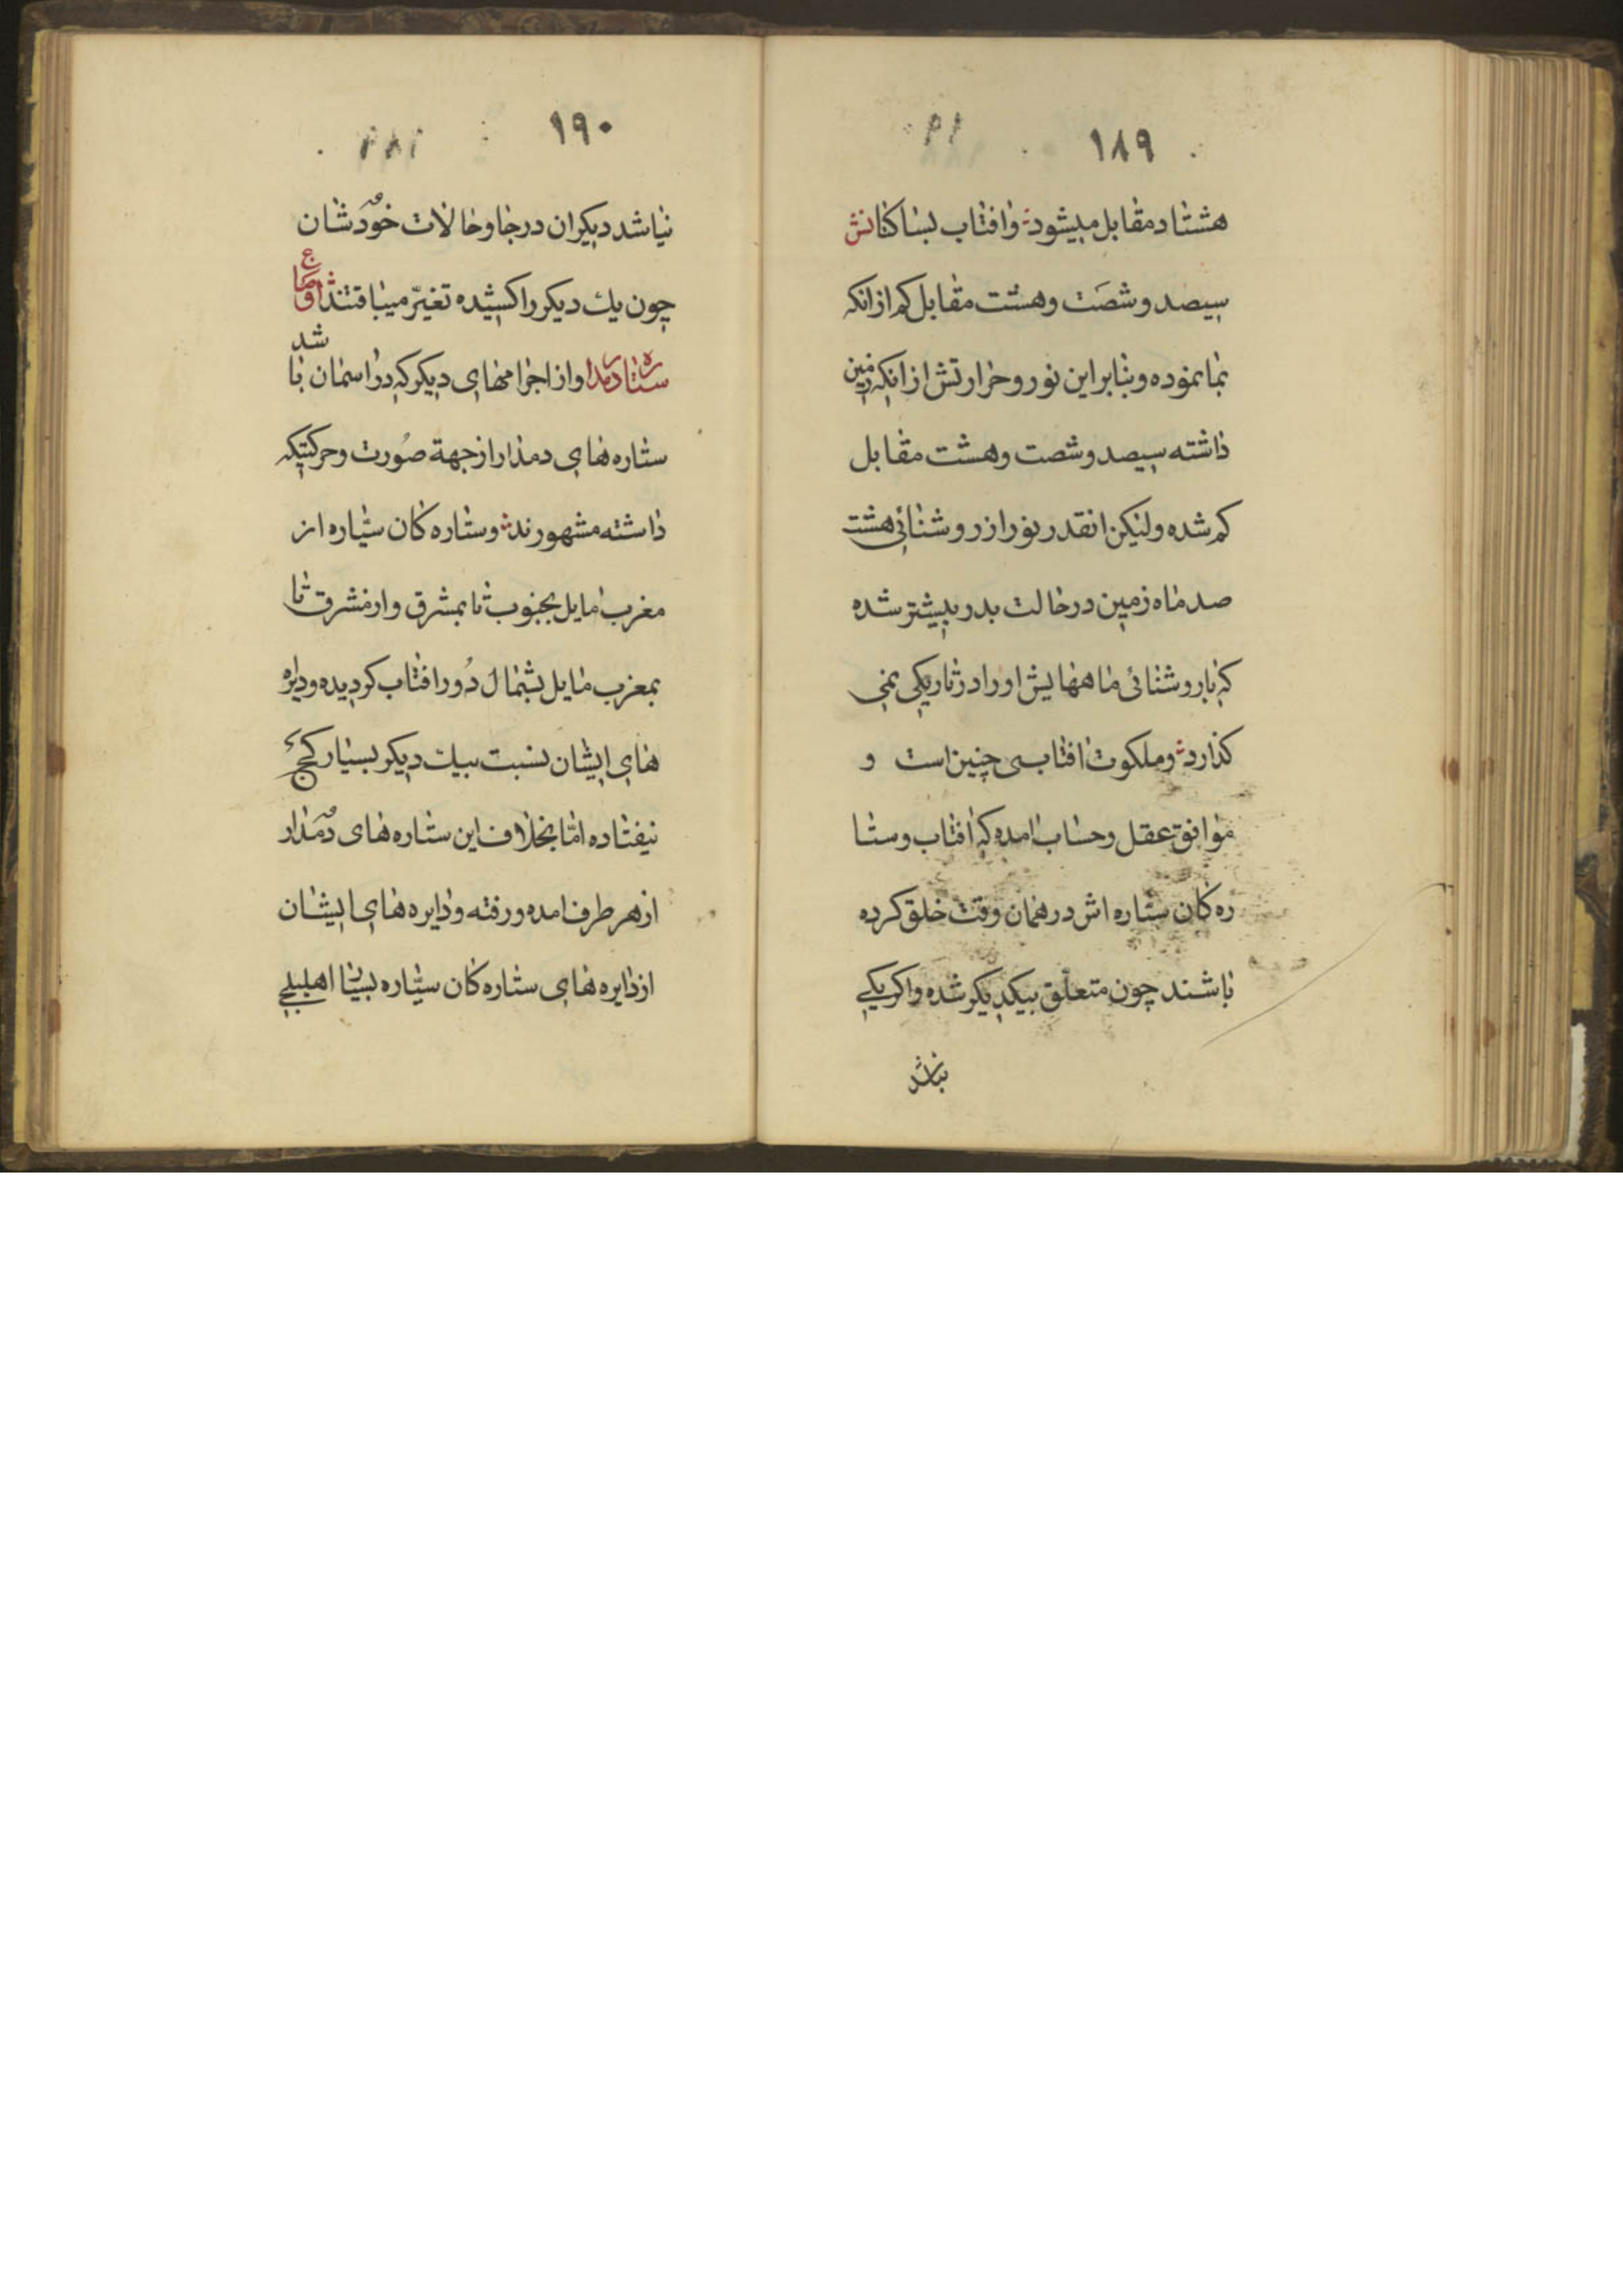 ١٨٩
هشتاد مقابل میشود وافتاب بساکنانش
سیصد وشصَت وهشت مقابل کم ازانکه
بما نموده وبنابراین نور وحرارتش ازانکه زمین
داشته سیصد وشصت وهشت مقابل
کم شده ولیکن انقدر نور از روشنائی هشت
صد ماه زمین درحالت بدر بیشتر شده
که با روشنائی ماههایش اورا درتاریکی نمی
کذارد وملکوت افتابی چنین است و
موافق عقل وحساب امده که افتاب وستا
ره کان ستاره اش درهمان وقت خلق کرده
باشند چون متعلّق بیکدیکر شده واکر یکی
١٩٠
نباشد دیکران درجا وحالات خودشان
چون یك دیکر را کشیده تغیّر میبافتند اوضاع
ستاره دمدار واز اجرامهای دیکر که در اسمان باشد
ستاره های دمدار ازجهة صُورت وحرکتیکه
داشته مشهورند وستاره کان سیّاره از
مغرب مایل بجنوب تا بمشرق وازمشرق تا
بمغرب مایل بشمال دُور افتاب کردیده ودایره
های ایشان نسبت بیك دیکر بسیار کج
نیفتاده امّا بخلاف این ستاره های دُمدار
ازهر طرف امده ورفته ودایره های ایشان
از دایره های ستاره کان سیّاره بسیار اهلیلجی